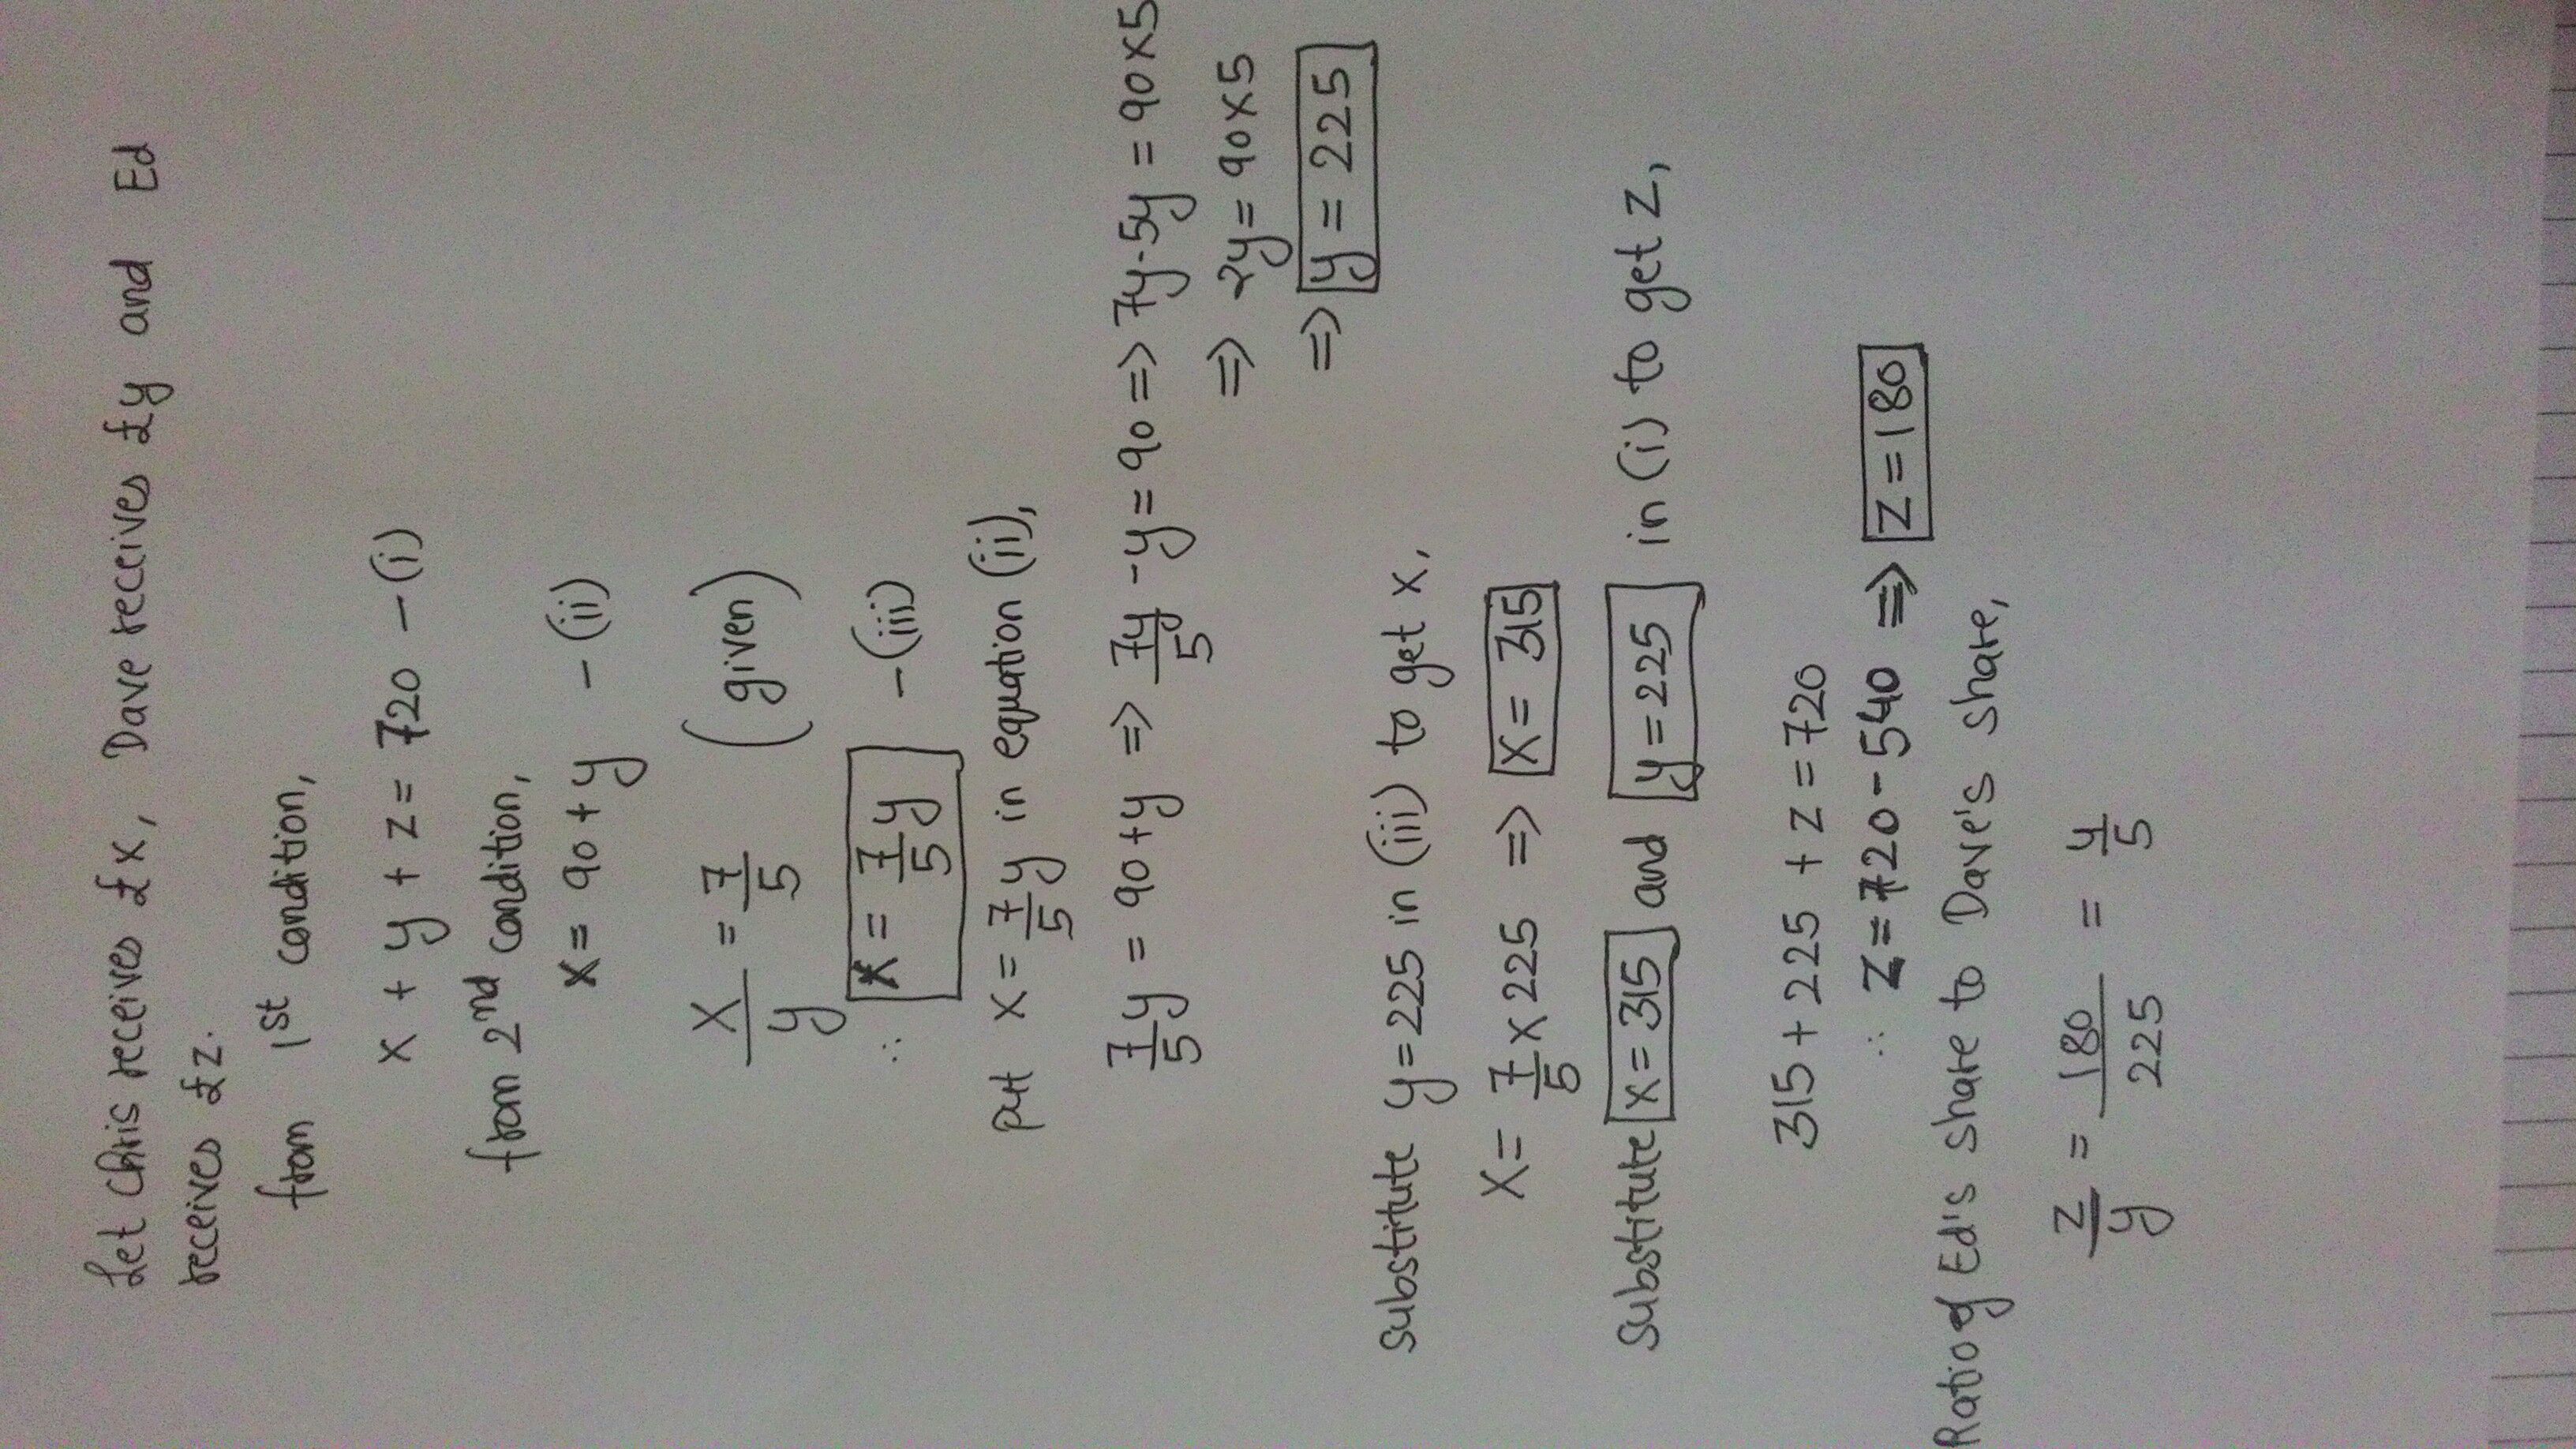 Let Chris receives £x, Dave receives £y and Ed
receives £z.
from 1st condition,
x + y + z = 720 - (i)
from 2nd condition,
x = 90 + y - (ii)
x/y = 7/5 (given)
∴ x = 7/5 y - (iii)
put x = 7/5 y in equation (ii),
7/5 y = 90 + y => 7y/5 - y = 90 => 7y - 5y = 90 x 5
=> 2y = 90 x 5
=> y = 225
substitute y = 225 in (iii) to get x,
x = 7/5 x 225 => x = 315
Substitute x = 315 and y = 225 in (i) to get z,
315 + 225 + z = 720
∴ z = 720 - 540 => z = 180
Ratio of Ed's share to Dave's share,
z/y = 180/225 = 4/5